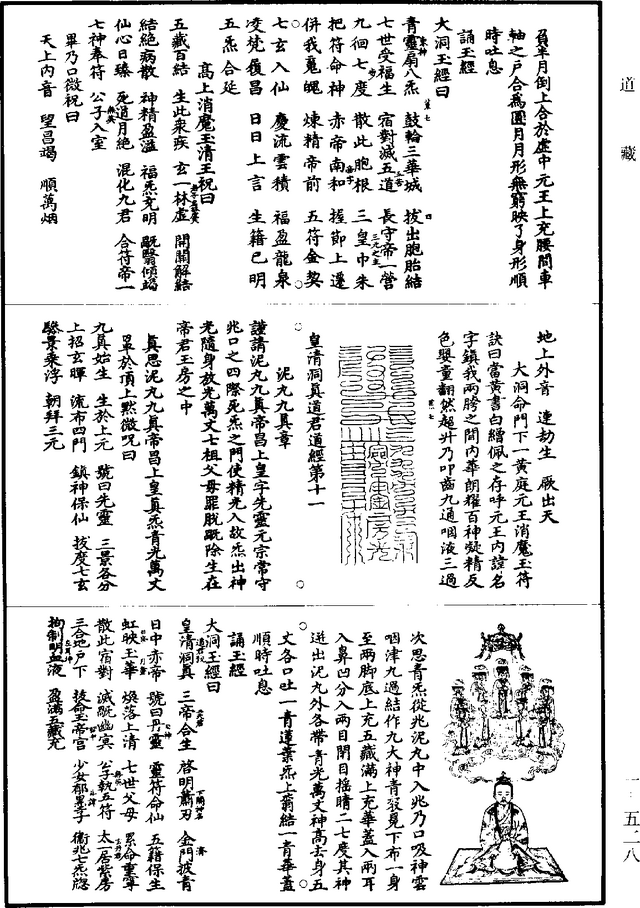 道藏
負芈月倒上合於虛中元王上充腰間車
軸之戶合為圓月月形無窮映了身形順
時吐息
誦玉經
大洞玉經曰
青靈扇八炁 鼓輪三華城 拔出胞胎結
七世受福生 宿對滅五道 長守帝一營
九徊七度 散此胞根 三皇中朱
把符命神 赤帝南和 握節上遷
併我魂魄 煉精帝前 五符金契
七玄入仙 慶流雲積 福盈龍泉
凌梵履昌 日日上言 生籍已明
五炁合延
高上消魔玉清王祝曰
五藏百結 生此衆疾 玄一林虛 開關解結
結絕病散 神精盈溢 福炁充明 翳傾竭
仙心日臻 死道月絕 混化九君 合符帝一
七神奉符 公子入室
畢乃口微祝曰
天上內音 望昌竭 順萬烟
地上外音 連劫生 厥出天
大洞命門下一黃庭元王消魔玉符
訣曰當黃書白繒佩之存呼元王內諱名
字鎮我兩胯之間內華朗耀百神凝精反
色嬰童翻然超升乃叩齒九通咽液三過
皇清洞真道君道經第十一
泥丸九真章
謹請泥丸九真帝昌上皇字先靈元宗常守
兆口之四際死炁之門使精光入故炁出神
光隨身放光萬丈七祖父母罪脫既除生在
帝君玉房之中
真思泥丸九真帝昌上皇真炁青光萬丈
罩於頂上默微呪曰
九真始生 生於上元 號曰先靈 三景各分
上招玄暉 流布四門 鎮神保仙 拔度七玄
驂景乘浮 朝拜三元
次思青炁從兆泥丸中入兆乃口吸神雲
咽津九過結作九大神青衣冕下布一身
至兩脚底上充五藏滿上充華蓋入兩耳
入鼻凹分入兩目閉目揺睛二七度其神
迸出泥丸外各帶青光萬丈神高去身五
丈各口吐一青蓮葉炁上蓊結一青華蓋
順時吐息
誦玉經
大洞玉經曰
皇清洞真 三帝合生 啓明蕭刃 金門披青
日中赤帝 號曰丹靈 靈符命仙 五籍保生
虹映玉華 煥落上清 七世父母 累命重尊
散此宿對 滅幽冥 公子執五符 太一居紫房
三合地戶下 拔命玉帝宮 少女郁 衛兆七炁
拘制明血液 盈滿五藏充
一:五一八